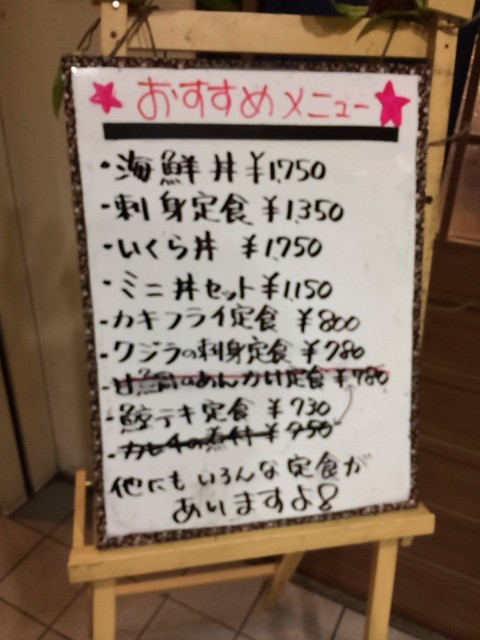 おすすめメニュー
・海鮮丼 ¥1,750
・刺身定食 ¥1,350
・いくら丼 ¥1,750
・ミニ丼セット ¥1,150
・カキフライ定食 ¥800
・クジラの刺身定食 ¥780
・甘鯛のあんかけ定食 ¥780
・鯨テキ定食 ¥730
・カレイの煮付 ¥750
他にもいろんな定食が
ありますよ